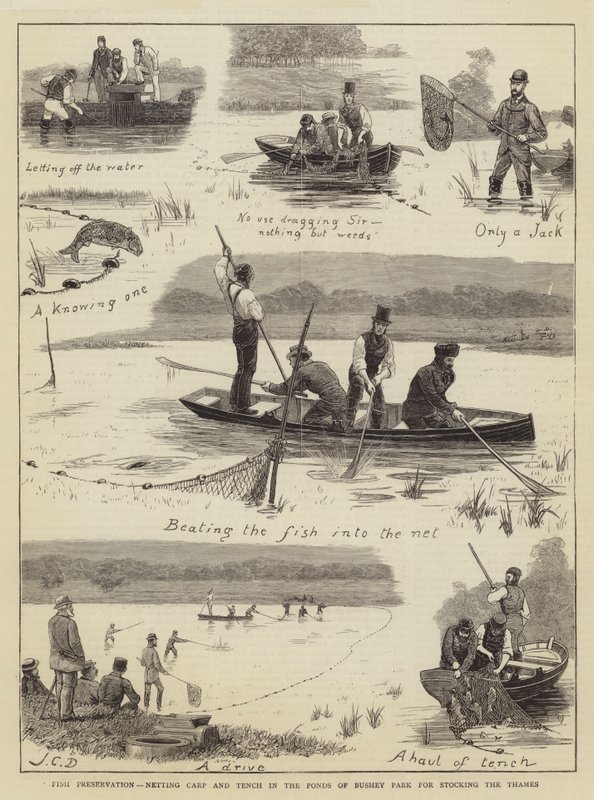 Letting off the water
No use dragging Sir—
nothing but weeds"
Only a Jack
A Knowing one
Beating the fish into the net
J.C.D
A drive
A haul of tench
FISH PRESERVATION — NETTING CARP AND TENCH IN THE PONDS OF BUSHEY PARK FOR STOCKING THE THAMES